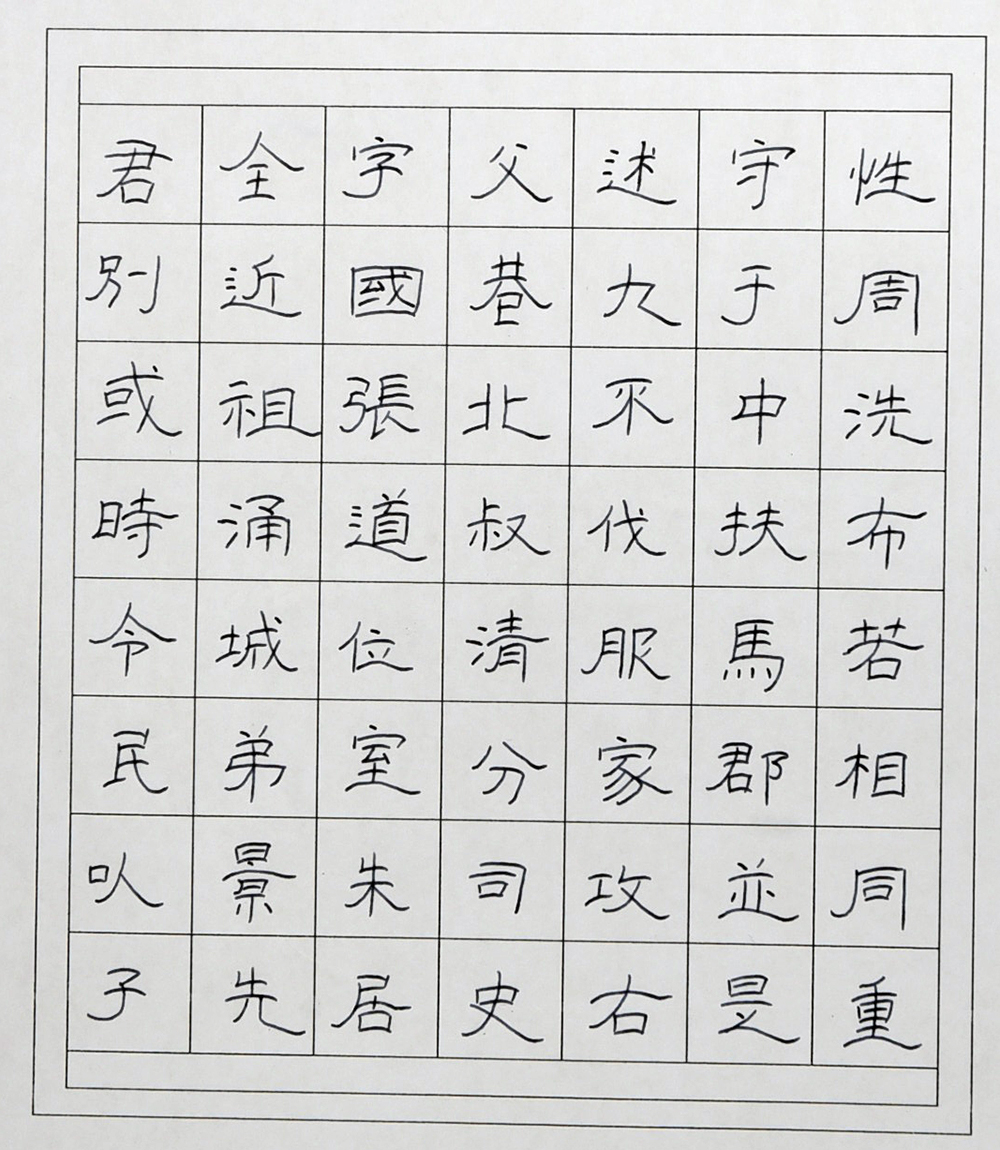 性周洗布若相同重
守于中扶馬郡並是
述九不伐服家攻右
父巷北叔清分司史
字國張道位室朱居
全近祖涌城弟景先
君別或時令民以子